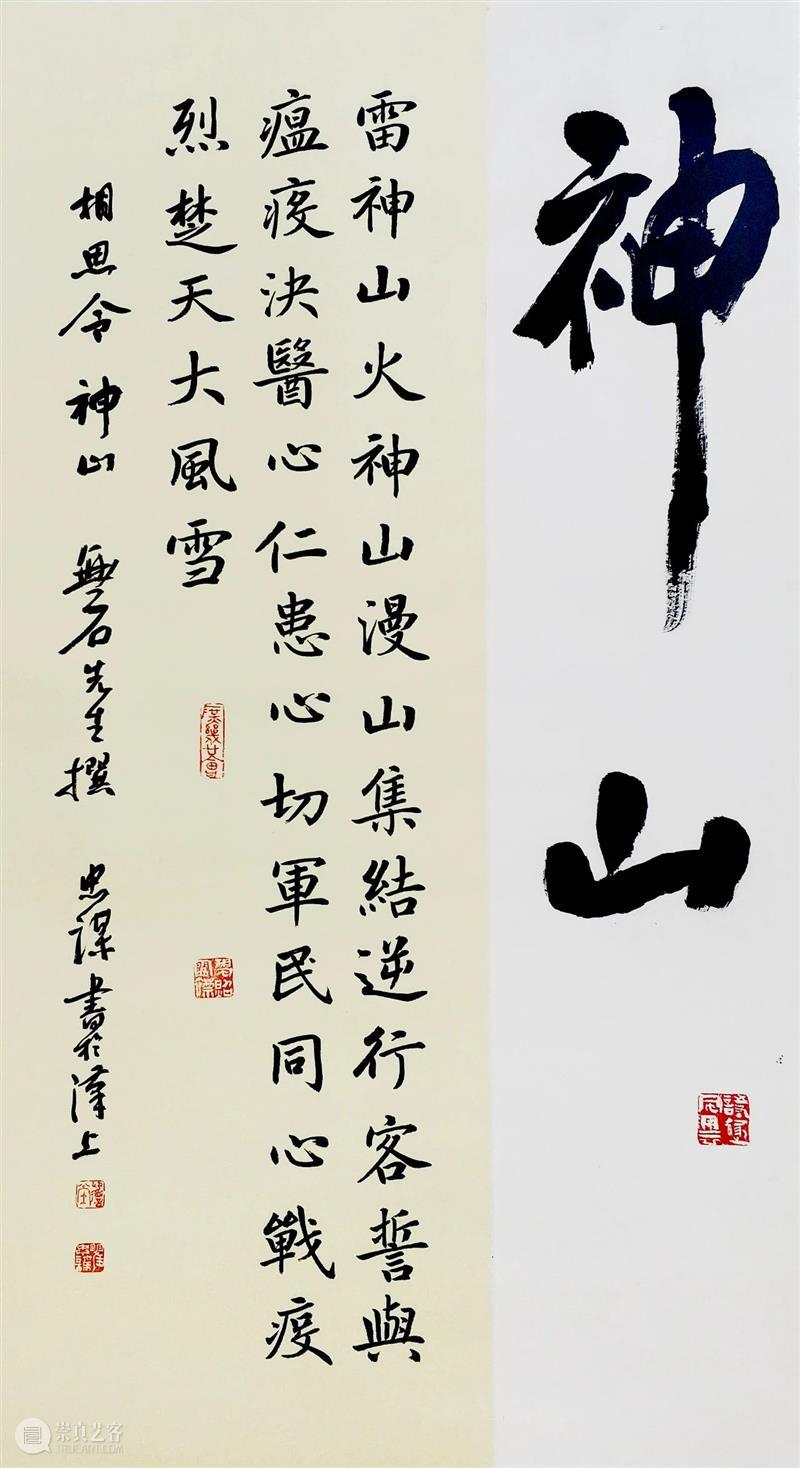 神山
雷神山火神山漫山集結逆行客誓與
瘟疫決醫心仁患心切軍民同心戰疫
烈楚天大風雪
相思令 神山 無名先生撰 忠謀書於漢上
崇真艺客
TRUEART.COM